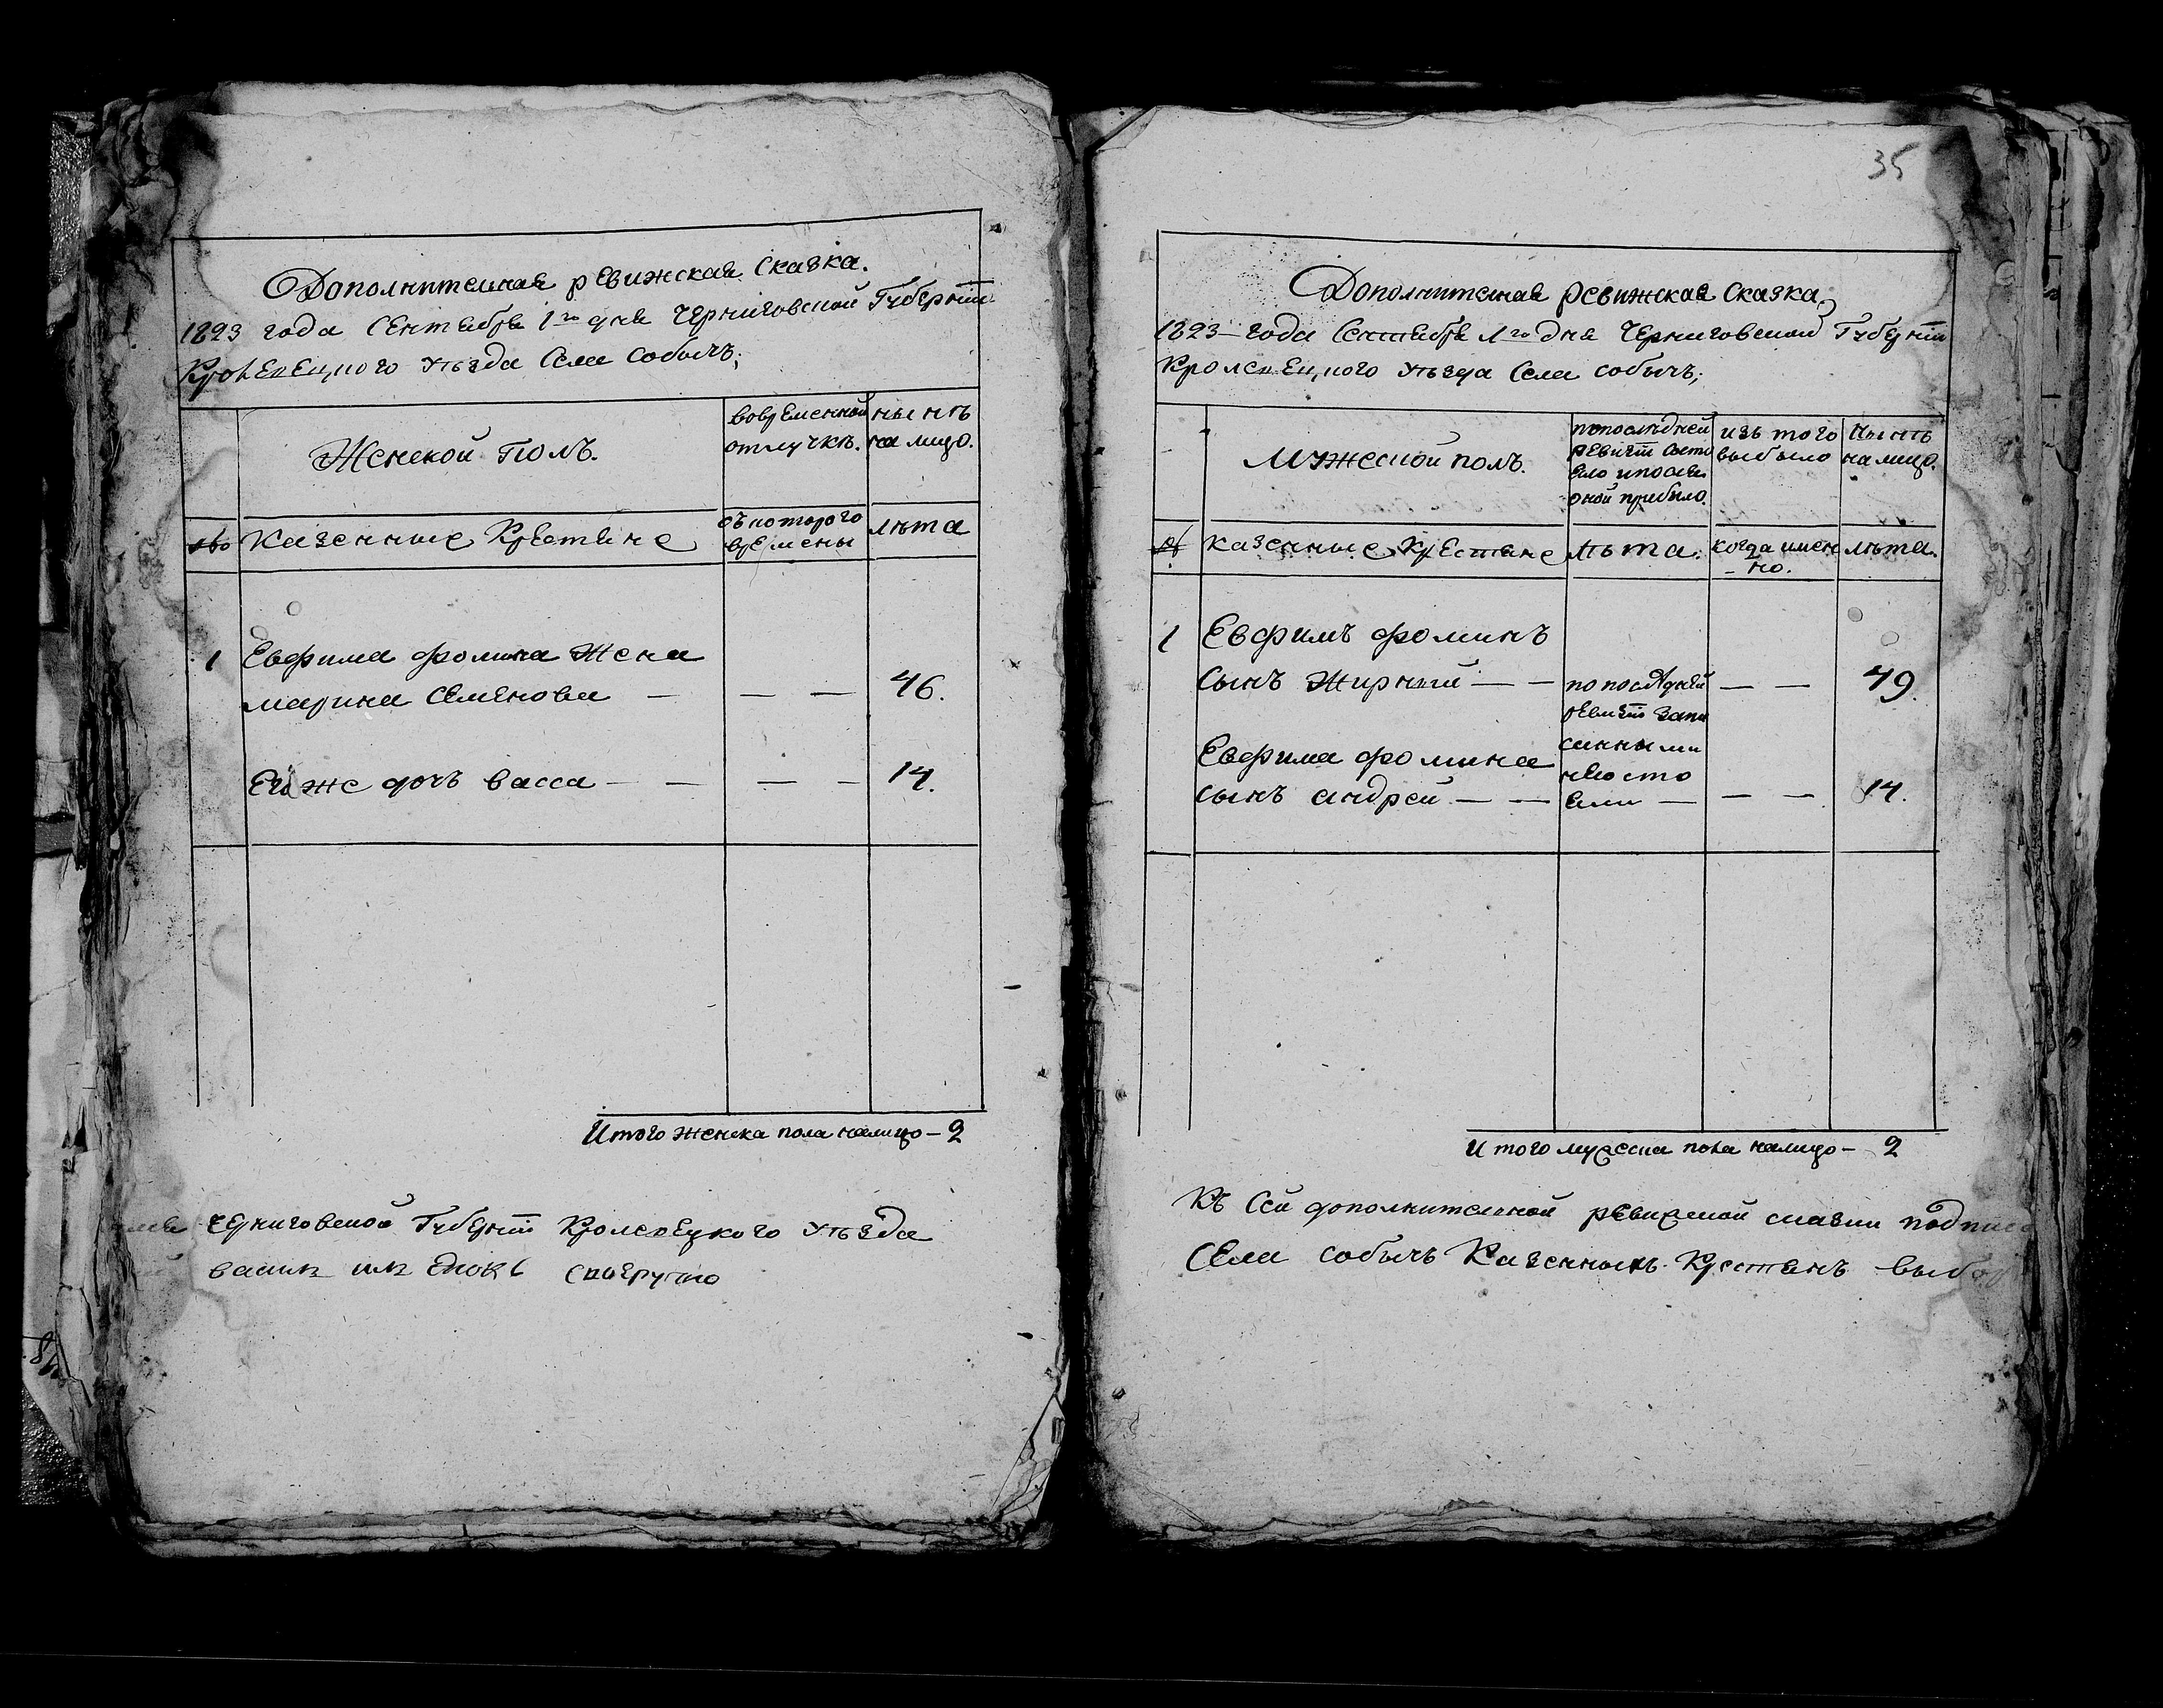 Дополнителная ревижская Сказка.
1823 года Сентебря 1го дня Черниговской Губернїи
Кролевецкого уѣзда Села Собычъ;
Женской Полъ.
вовременной отлучкѣ.
нынѣ на лицо.
Казенные Крестяне
съ которого времены
лѣта
1 Евфима фомина Жена
марина Семенова — — — 46.
Ей же дочь васса — — — — 14.
Итого женска пола налицо — 2
Черниговской Губернїи Кролевецкого уѣзда
35
Дополнителная ревижская Сказка
1823 года Сентебря 1го дня Черниговской Губернїи
Кролевецкого уѣзда Села Собычъ;
Мужеской полъ.
попоследней ревизїи состояло ипосле оной прибыло.
изъ того выбыло
Нынѣ налицо.
№ казенные Крестяне
Лѣта.
когда имен-но.
лѣта.
1 Евфимъ фоминъ
сынъ Жирный — — по последней — — 49.
ревизїи запи
Евфима фомина санными
несосто
сынъ андрей — — яли — — — 14.
Итого мужеска пола налицо — 2
Къ Сей дополнителной ревижской сказки
Села Собычъ Казенныхъ Крестянъ